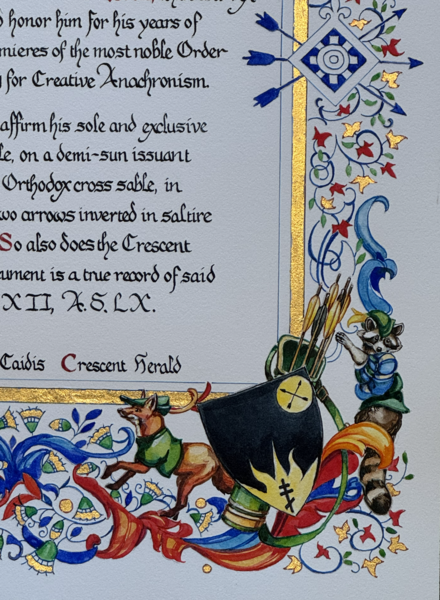 honor him for his years of
mieres of the most noble Order
for Creative Anachronism.
affirm his sole and exclusive
le, on a demi-sun issuant
Orthodox cross sable, in
wo arrows inverted in saltire
So also does the Crescent
cument is a true record of said
XII, A. S. LX.
Caidis Crescent Herald